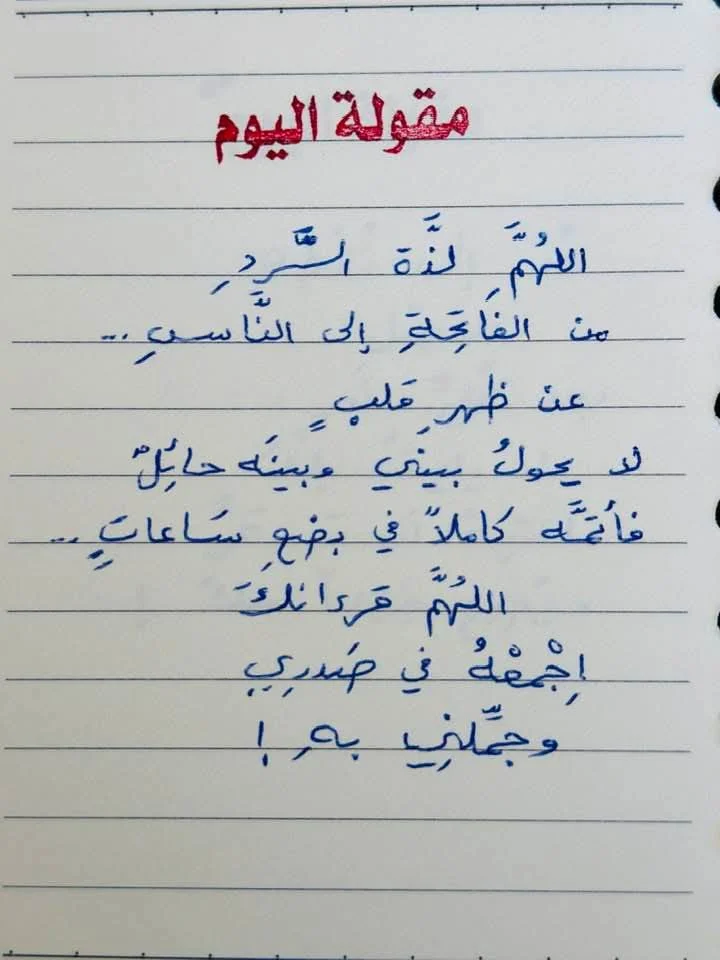 مقولة اليوم
اللهُمَّ لذَّة السَّردِ
من الفَاتِحَةِ إلى النَّاسِ ...
عن ظهرِ قَلبٍ
لا يحولُ بيني وبينَه حائِلٌ
فأتمَّه كاملاً في بضعِ سَاعاتٍ ...
اللهُمَّ قرءانكَ
اِجْمعْهُ في صَدرِي
وجمِّلنِي بهِ !